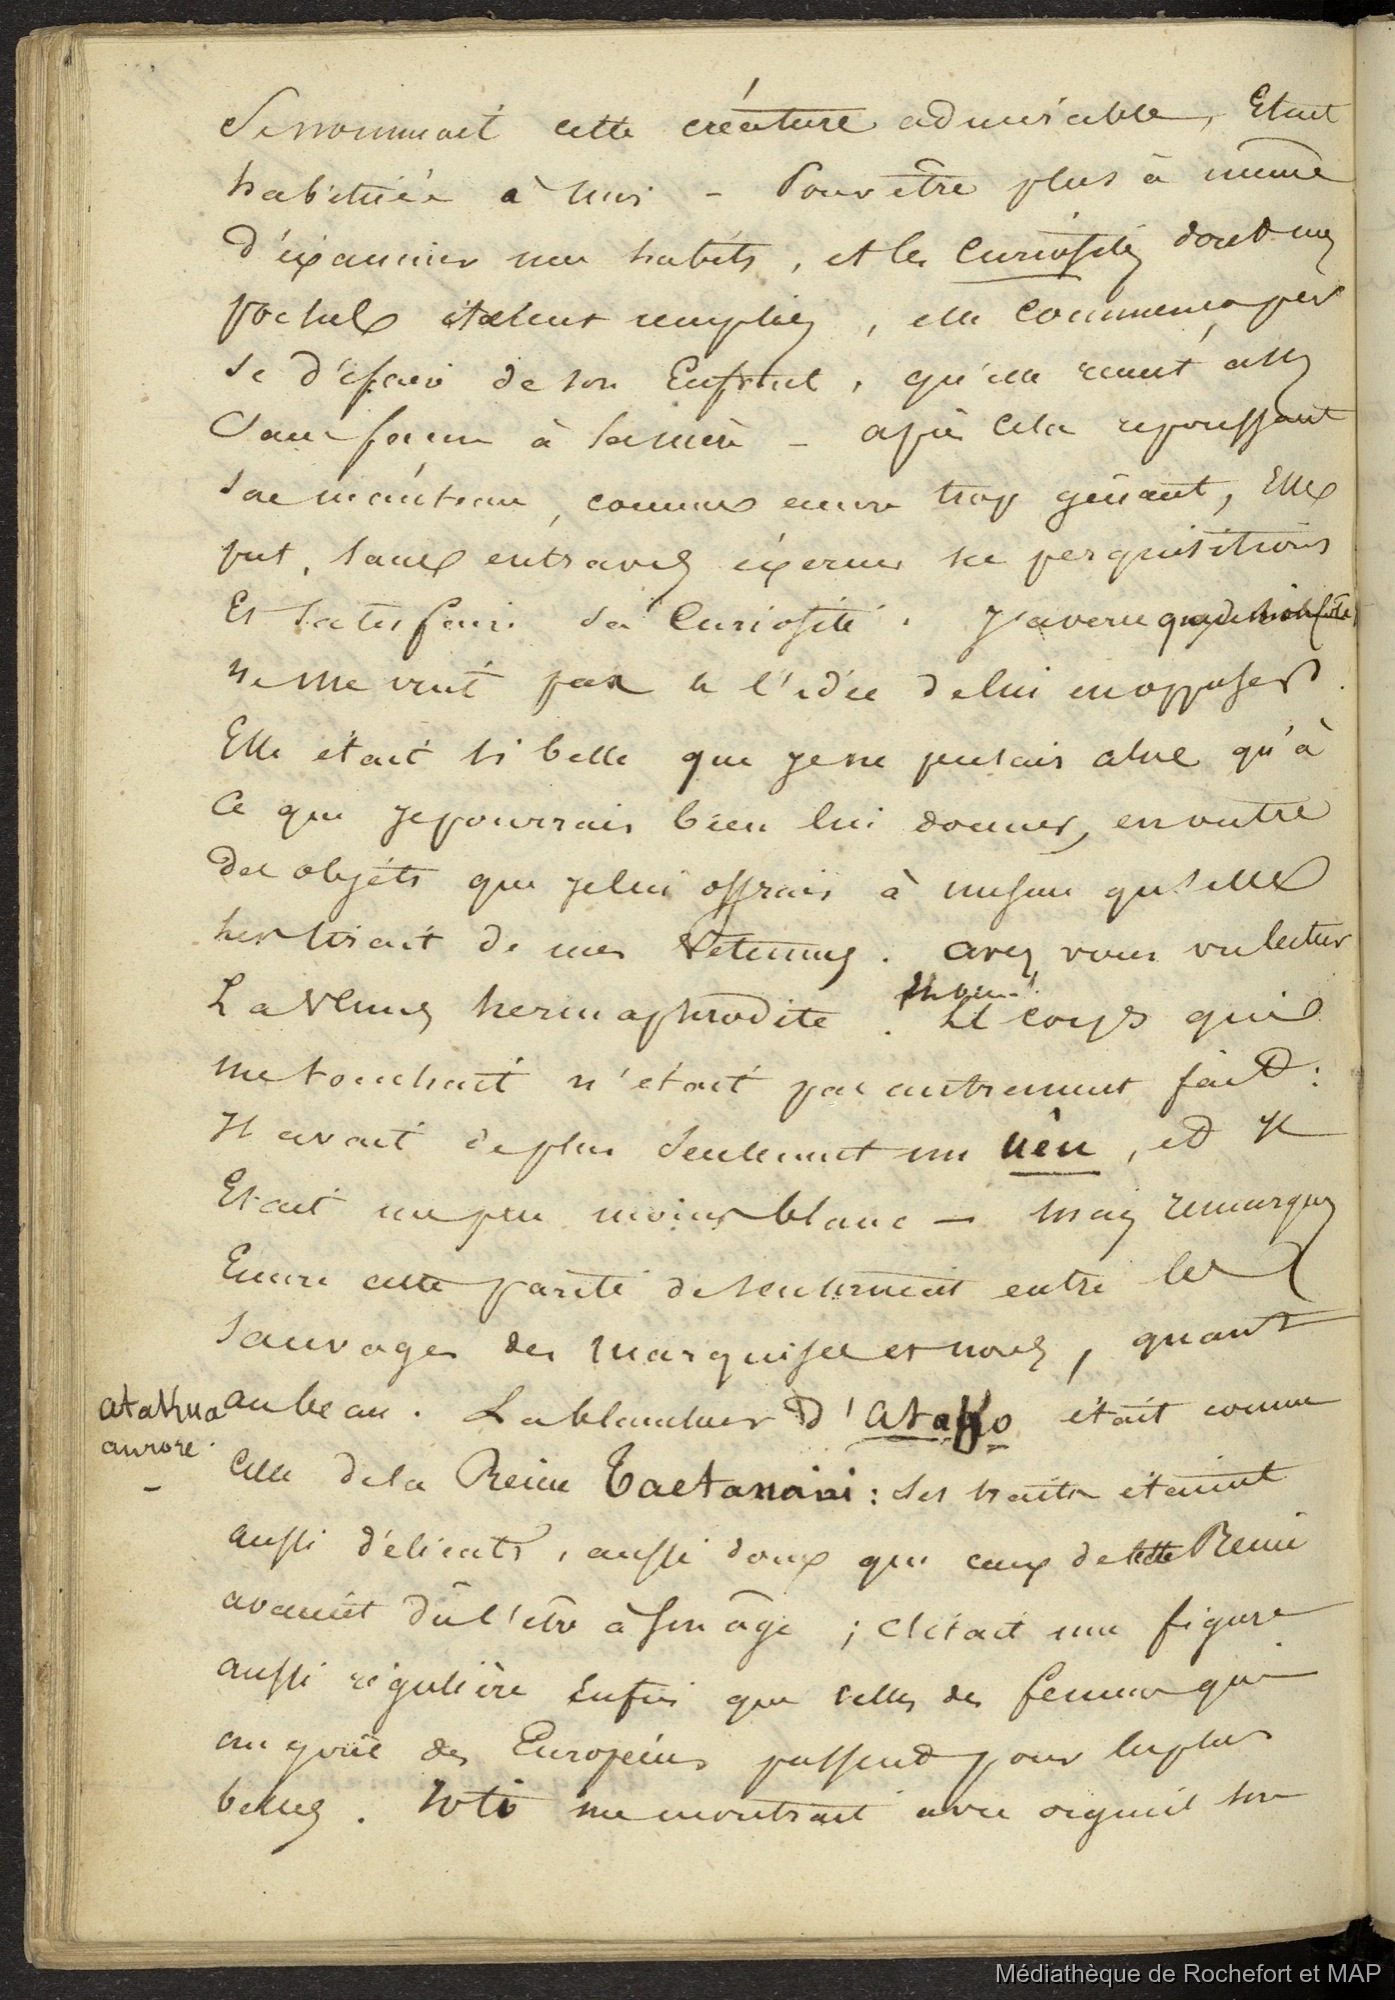 se nommait cette créature admirable, était
habituée à moi – Pour être plus à même
d'éxaminer mes habits, et les curiosités dont mes
poches étaient remplies, elle commença par
se défaire de son Enfant, qu'elle remit assez
sans façon à sa mère – après cela repoussant
son manteau, comme encore trop gênant, Elle
put, sans entraves éxercer ses perquisitions
Et satisfaire sa Curiosité. J'avoue que de mon côté
il ne me vint pas à l'idée de lui en opposer.
Elle était si belle que je ne pensais alors qu'à
ce que je pourrais bien lui donner, en outre
des objéts que je lui offrais à mesure qu'elle
les tirait de mes vêtemens. avez vous vu lecteur
La Vénus hermaphrodite. Le corps qui
me touchait n'était pas autrement fait :
Il avait de plus seulement un uêu, et Il
Etait un peu moins blanc – Mais remarquez
Encore cette parité de sentiment entre les
Sauvages des Marquises et nous, quant
au beau. La blancheur d' était comme
atakua
aurore
–
Celle de la Reine Taetanoini : ses traits étaient
aussi délicats, aussi doux que ceux de cette Reine
avaient dû l'être à son âge ; C'était une figure
aussi régulière Enfin que celles des femmes qui
au goût des Européens passent pour les plus
belles. Toti me montrait avec orgueil son
Médiathèque de Rochefort et MAP